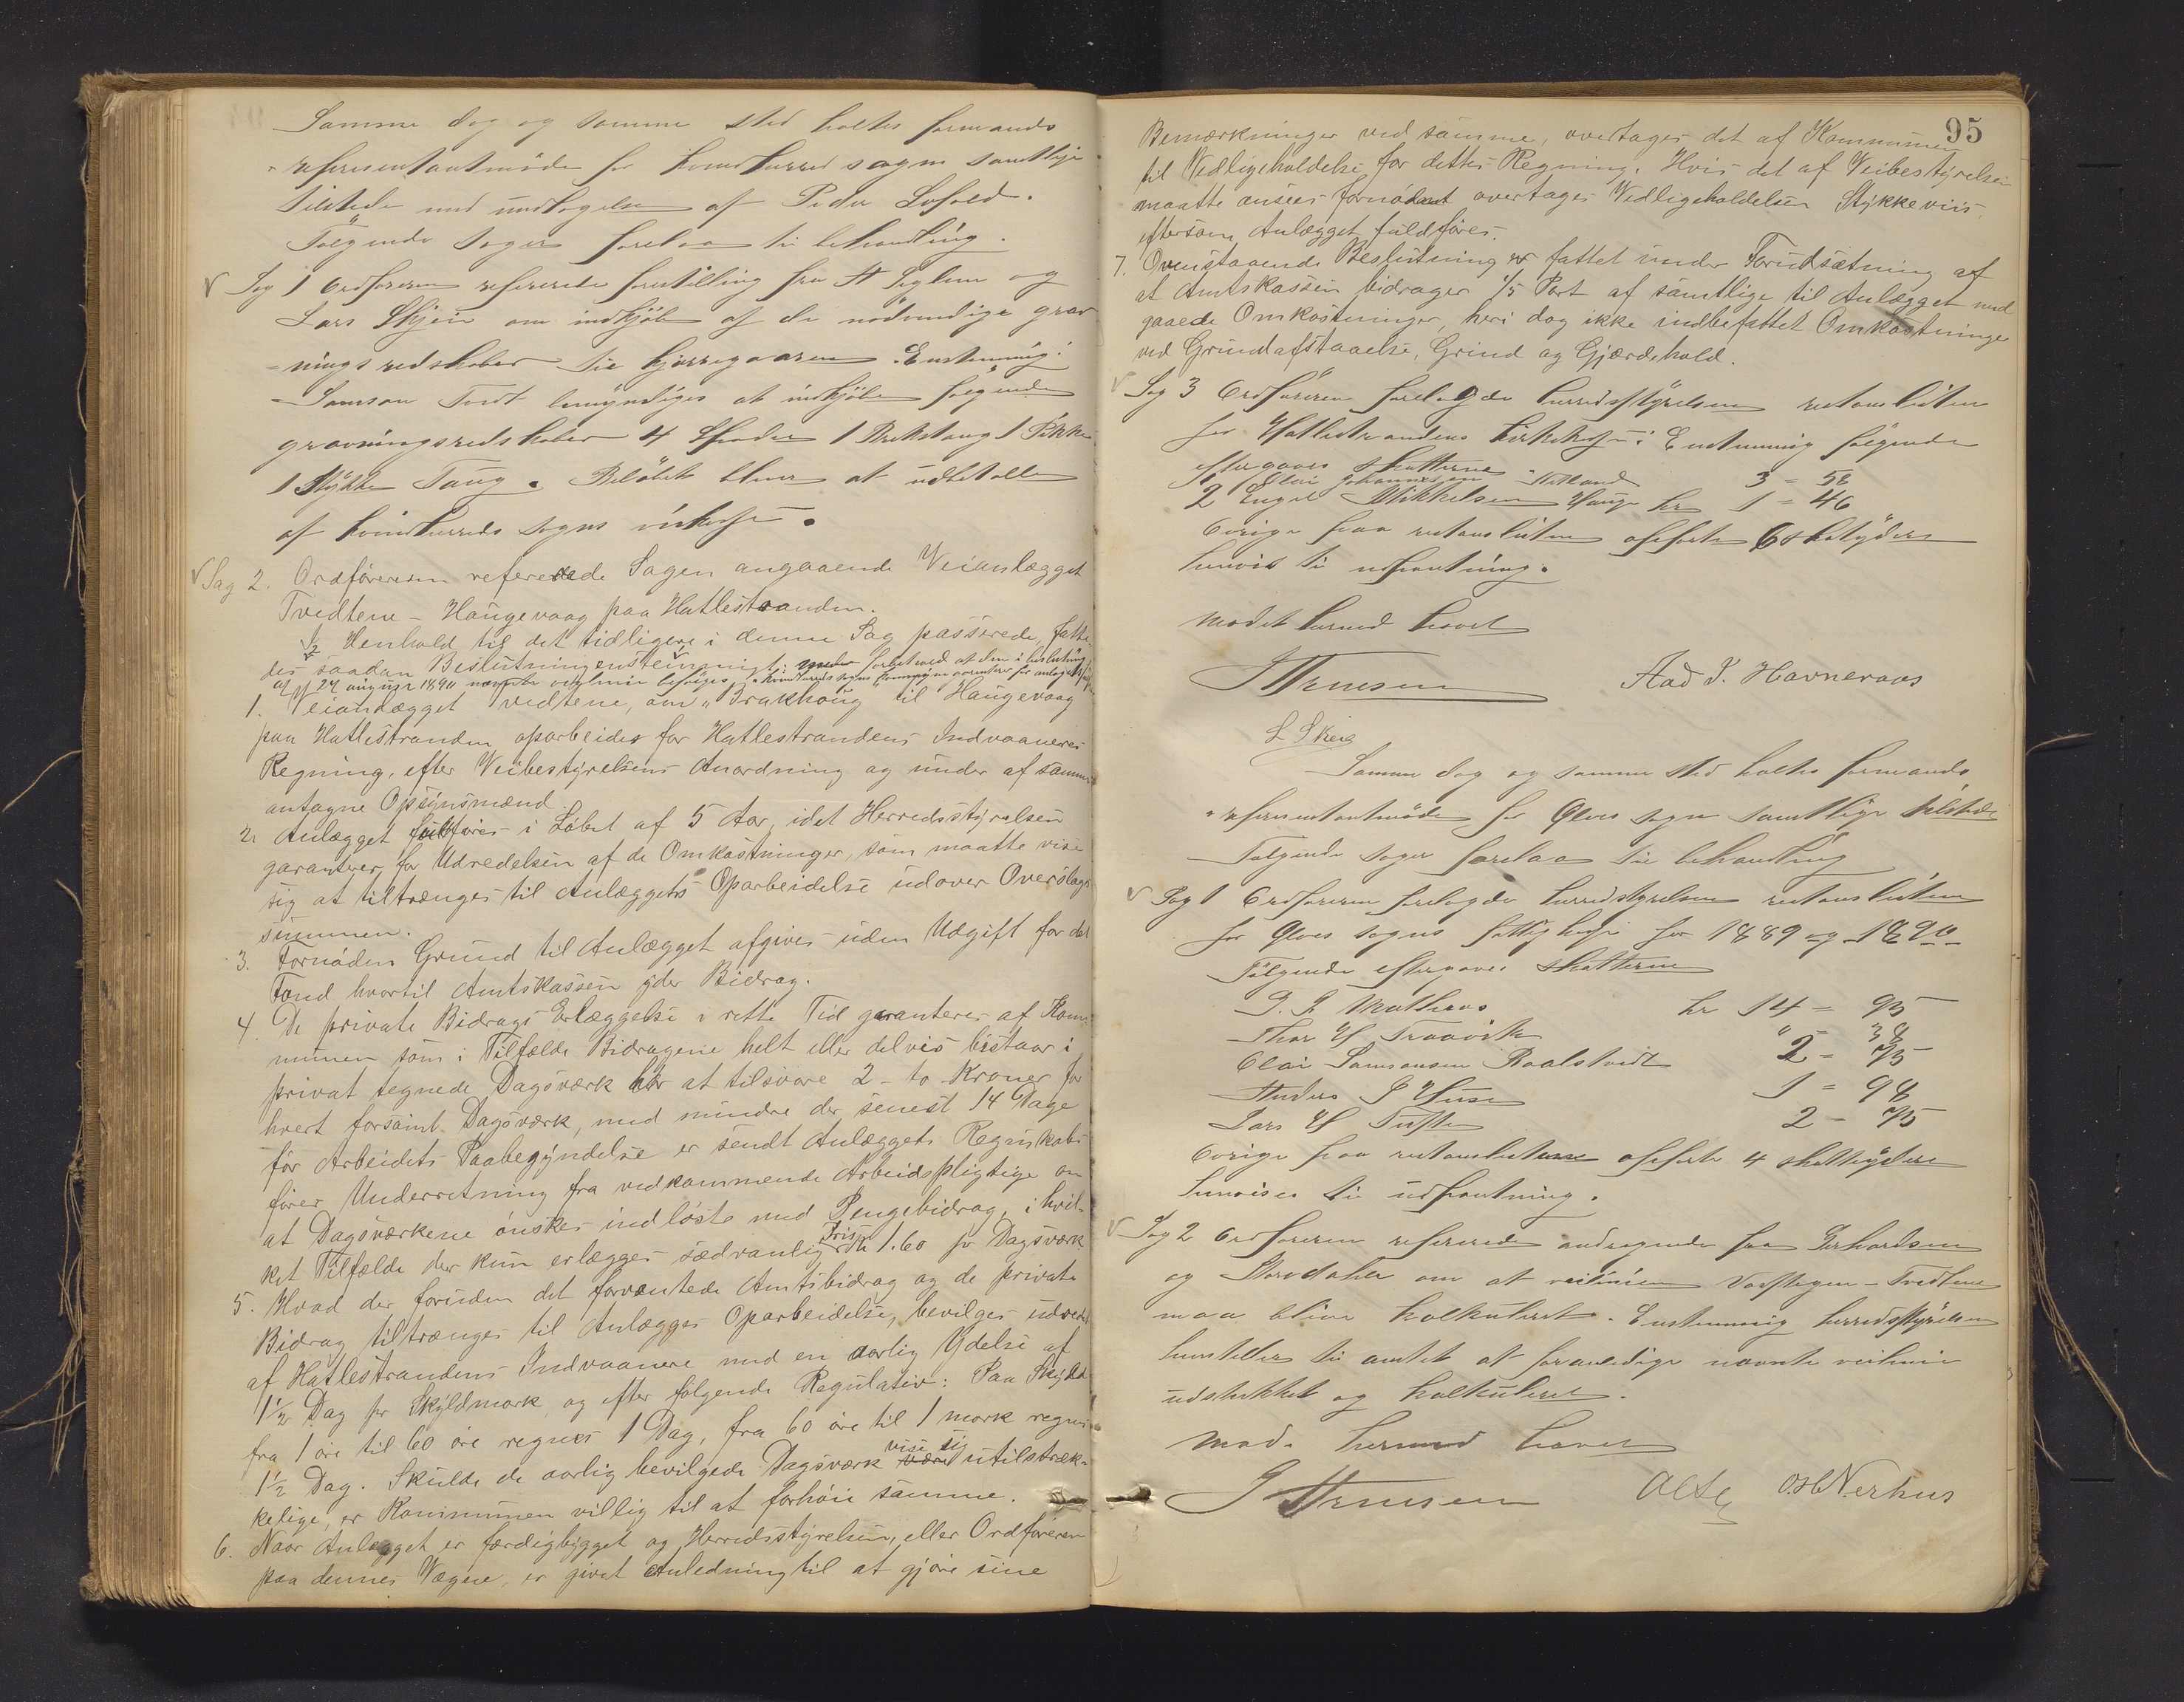 Samme dag og samme sted holtes formands
-representantmöde for kvindherred sogn samtlige
tilstede med undtagelse af Peder
Fölgende sager forelaa til behandling.
Sag 1 Ordföreren refererede forestilling fra A Seglem og
Lars Skjeie om indkjöb af de nödvendige grav
-nings redskaber til kjirregaaren. Enstemmig:
Samson Tvedt bemyndiges at indkjöbe fölgende
gravningsredskaber 4 Spader 1 Brækstang 1 Pikke
1 Stykke Taug. Belöbet bliver at udbetalle
af kvindherreds sogns
Sag 2. Ordföreren refererede Sagen angaaende Veianlægget
Tvedtene - Haugevaag paa Hatlestranden.
I Henhold til det tidligere i denne Sag passerede, fatte-
des saadan Beslutning enstemmigt: forbehold at den i beslutning
af 24 august 1890 nævnte veglinie
1. Veianlægget Tvedtene, om "Brakhoug" til Haugevaag
paa Hatlestranden oparbeides for Hatlestrandens Indvaaneres
Regning, efter Veibestyrelsens Anordning og under af samme
antagne Opsynsmænd.
2. Anlægget fuldföres i Löbet af 5 Aar, idet Herredsstyrelsen
garanterer for Udredelsen af de Omkostninger, som maatte vise
sig at tiltrænges til Anlæggets Oparbeidelse udover Overslags
summen.
3. Fornöden Grund til Anlægget afgives uden Udgift for det
Fond hvortil Amtskassen yder Bidrag.
4. De private Bidrags Erlæggelse i rette Tid garanteres af Kom-
munen som i Tilfælde Bidragene helt eller delvis bistaar i
privat tegnede Dagsværk har at tilsvare 2 - to Kroner for
hvert forsömt Dagsværk, med mindre der senest 14 Dage
för Arbeidets Paabegyndelse er sendt Anlæggets Regnskabs
förer Underretning fra vedkommende Arbeidspligtige om
at Dagsværkene önskes indlöste med Pengebidrag, i hvil-
ket Tilfælde der kun erlægges sædvanlig Pris Kr 1.60 pr Dagsværk
5. Hvad der foruden det forventede Amtsbidrag og de private
Bidrag tiltrænges til Anlægges Oparbeidelse, bevilges udredet
af Hatlestrandens Indvaanere med en aarlig Ydelse af
1½ Dag pr Skyldmark og efter fölgende Regulativ: Paa Skyld
fra 1 öre til 60 öre regnes 1 Dag, fra 60 öre til 1 mark regnes
1½ Dag. Skulde de aarlig bevilgede Dagsværk være vise sig utilstræk-
kelige, er Kommunen villig til at forhöie samme.
6. Naar Anlægget er færdigbygget og Herredsstyrelsen, eller Ordföreren
paa dennes Vegne, er givet Anledning til at gjöre sine
95
Bemærkninger ved samme, overtages det af Kommunen
til Vedligeholdelse for dettes Regning. Hvis det af Veibestyrelsen
maatte ansees fornödent overtages Vedligeholdelsen Stykkeviis,
eftersom Anlægget fuldföres.
7. Ovenstaaende Beslutning er fattet under Forudsætning af
at Amtskassen bidrager 1/5 Part af samtlige til Anlægget med
gaaede Omkostninger, heri dog ikke indbefattet Omkostninger
ved Grundafstaaelse, Grind og Gjærdehold.
Sag 3 Ordföreren forelagde herredsstyrelsen restanslisten
for Hatlestrandens kirkekasse: Enstemmig fölgende
eftergaves skatterne
1 Olai Johannesen 3 = 58
2 Engel Mikkelsen Hauge kr 1 = 46
Övrige paa restanslisten opförte 6 skatydere
henvis til udpantning.
Mödet hermed hævet
Aad J. Havneraas
L Skeie
Samme dag og samme sted holtes formands
-representantmöde for Ølves sogn samtlige tilstede
Fölgende sager forelaa til behandling
Sag 1 Ordföreren forelagde herredsstyrelsen restanslisten
for Ølves sogns fattigkasse for 1889 og 1890
Fölgende eftergaves skatterne
kr 14 = 95
Thor H " = 38
Olai Samsonsen 2 = 75
Anders J Huse 1 = 98
Lars H Tufte 2 - 75
Övrige paa restanslisterne opförte 4 skatteydere
henvises til udpantning.
Sag 2 Ordföreren refererede andragende fra Gerhardsen
og om at veilinien - Tvedtene
maa blive kalkuleret. Enstemmig herredsstyrelsen
henstiller til amtet at foranledige nævnte veilinie
udstukket og kalkuleret.
Möde hermed hævet
O H Nerhus